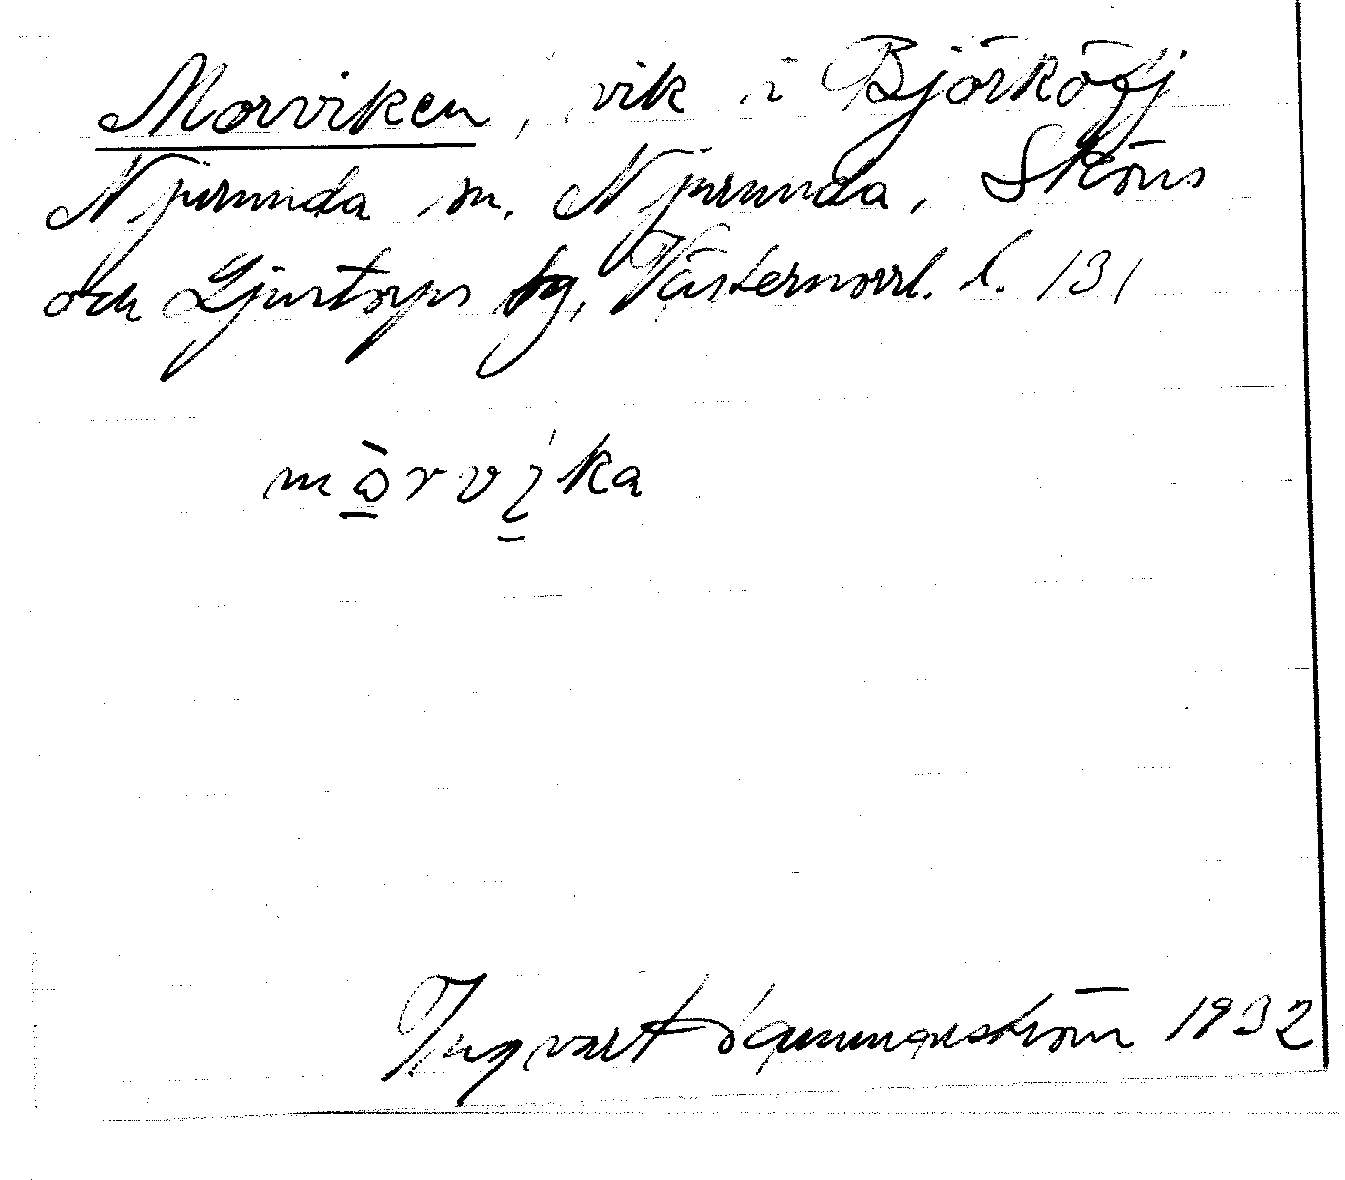 Morviken, vik i Björköfj
Njurunda sn. Njurunda, Sköns
och Ljustorps tg, Västernorrl. l. 131
mòrvị́ka
Ingvart Hammarström 1932